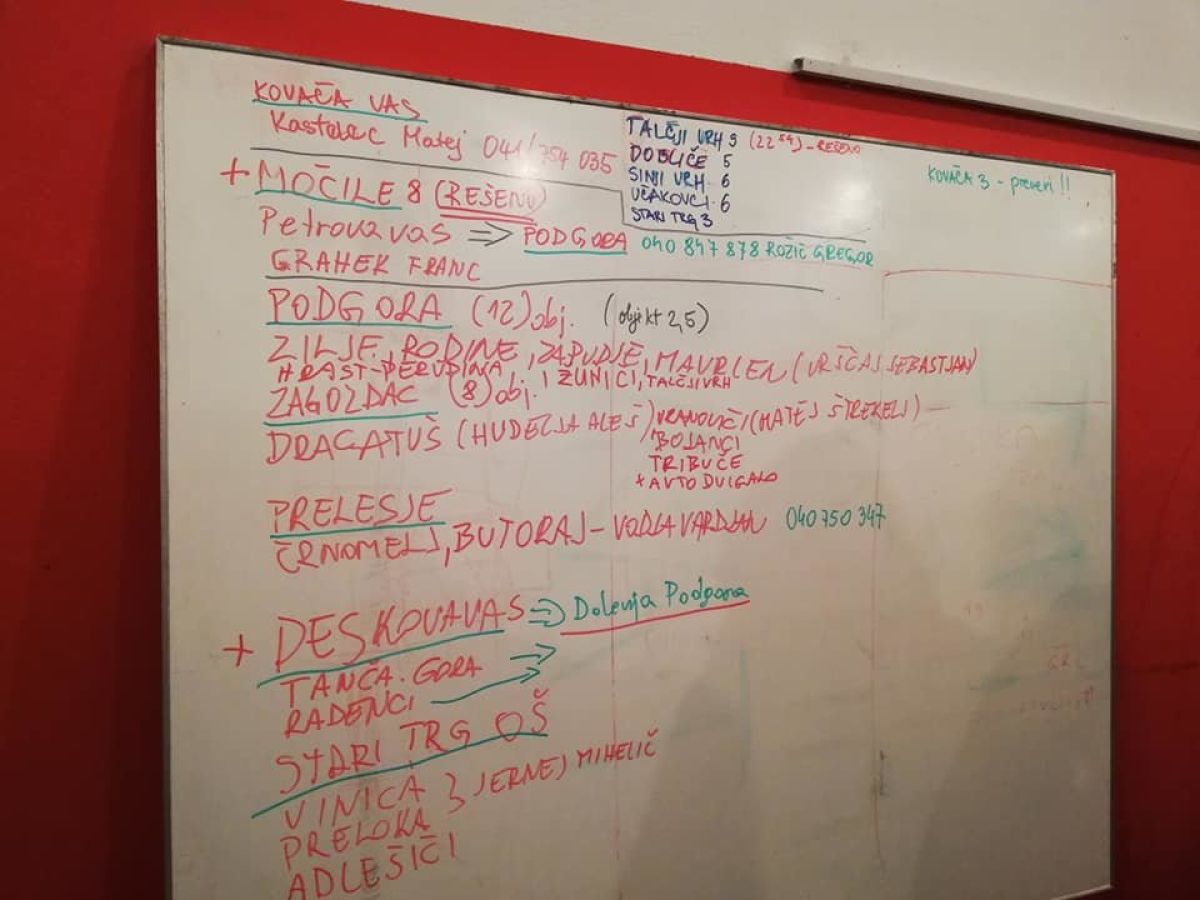 KOVAČA VAS
Kastelec Matej 041/754 035
TALČJI VRH 9 (22 54) - REŠENO
DOBLIČE 5
SINJI VRH 6
UČAKOVCI 6
STARI TRG 3
KOVAČA 3 - preveri !!
+ MOČILE 8 (REŠENO)
Petrova vas ⇒ PODGORA 040 847 878 ROŽIČ GREGOR
GRAHEK FRANC
PODGORA (12) obj. (objekt 2,5)
ZILJE, RODINE, ZAPUDJE, MAVRLEN (VRŠČAJ SEBASTJAN)
HRAST-PERUDINA, ŽUNIČI, TALČJI VRH
ZAGOZDAC (8) obj.
DRAGATUŠ (HUDELJA ALEŠ) VRANOVIČI (MATEJ ŠTREKELJ) -
BOJANCI
TRIBUČE
+ AVTO DVIGALO
PRELESJE
ČRNOMELJ, BUTORAJ - VODJA VARDJAN 040 750 347
+ DESKOVA VAS ⇒ Dolenja Podgora
TANČA GORA →
RADENCI →
STARI TRG OŠ
VINICA } JERNEJ MIHELIČ
PRELOKA
ADLEŠIČI